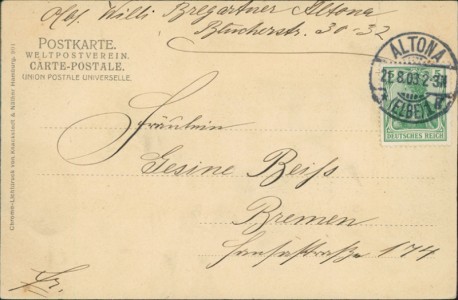 Abs. Willi Bregartner Altona
Blücherstr. 30-32
POSTKARTE.
WELTPOSTVEREIN.
CARTE-POSTALE.
UNION POSTALE UNIVERSELLE.
ALTONA
21.8.03 2-3N
(ELBE) 1
DEUTSCHES REICH
Fräulein
Gesine Beiss
Bremen
Hansastraße 174
Fr.
Chromo-Lichtdruck von Knackstedt & Näther Hamburg.